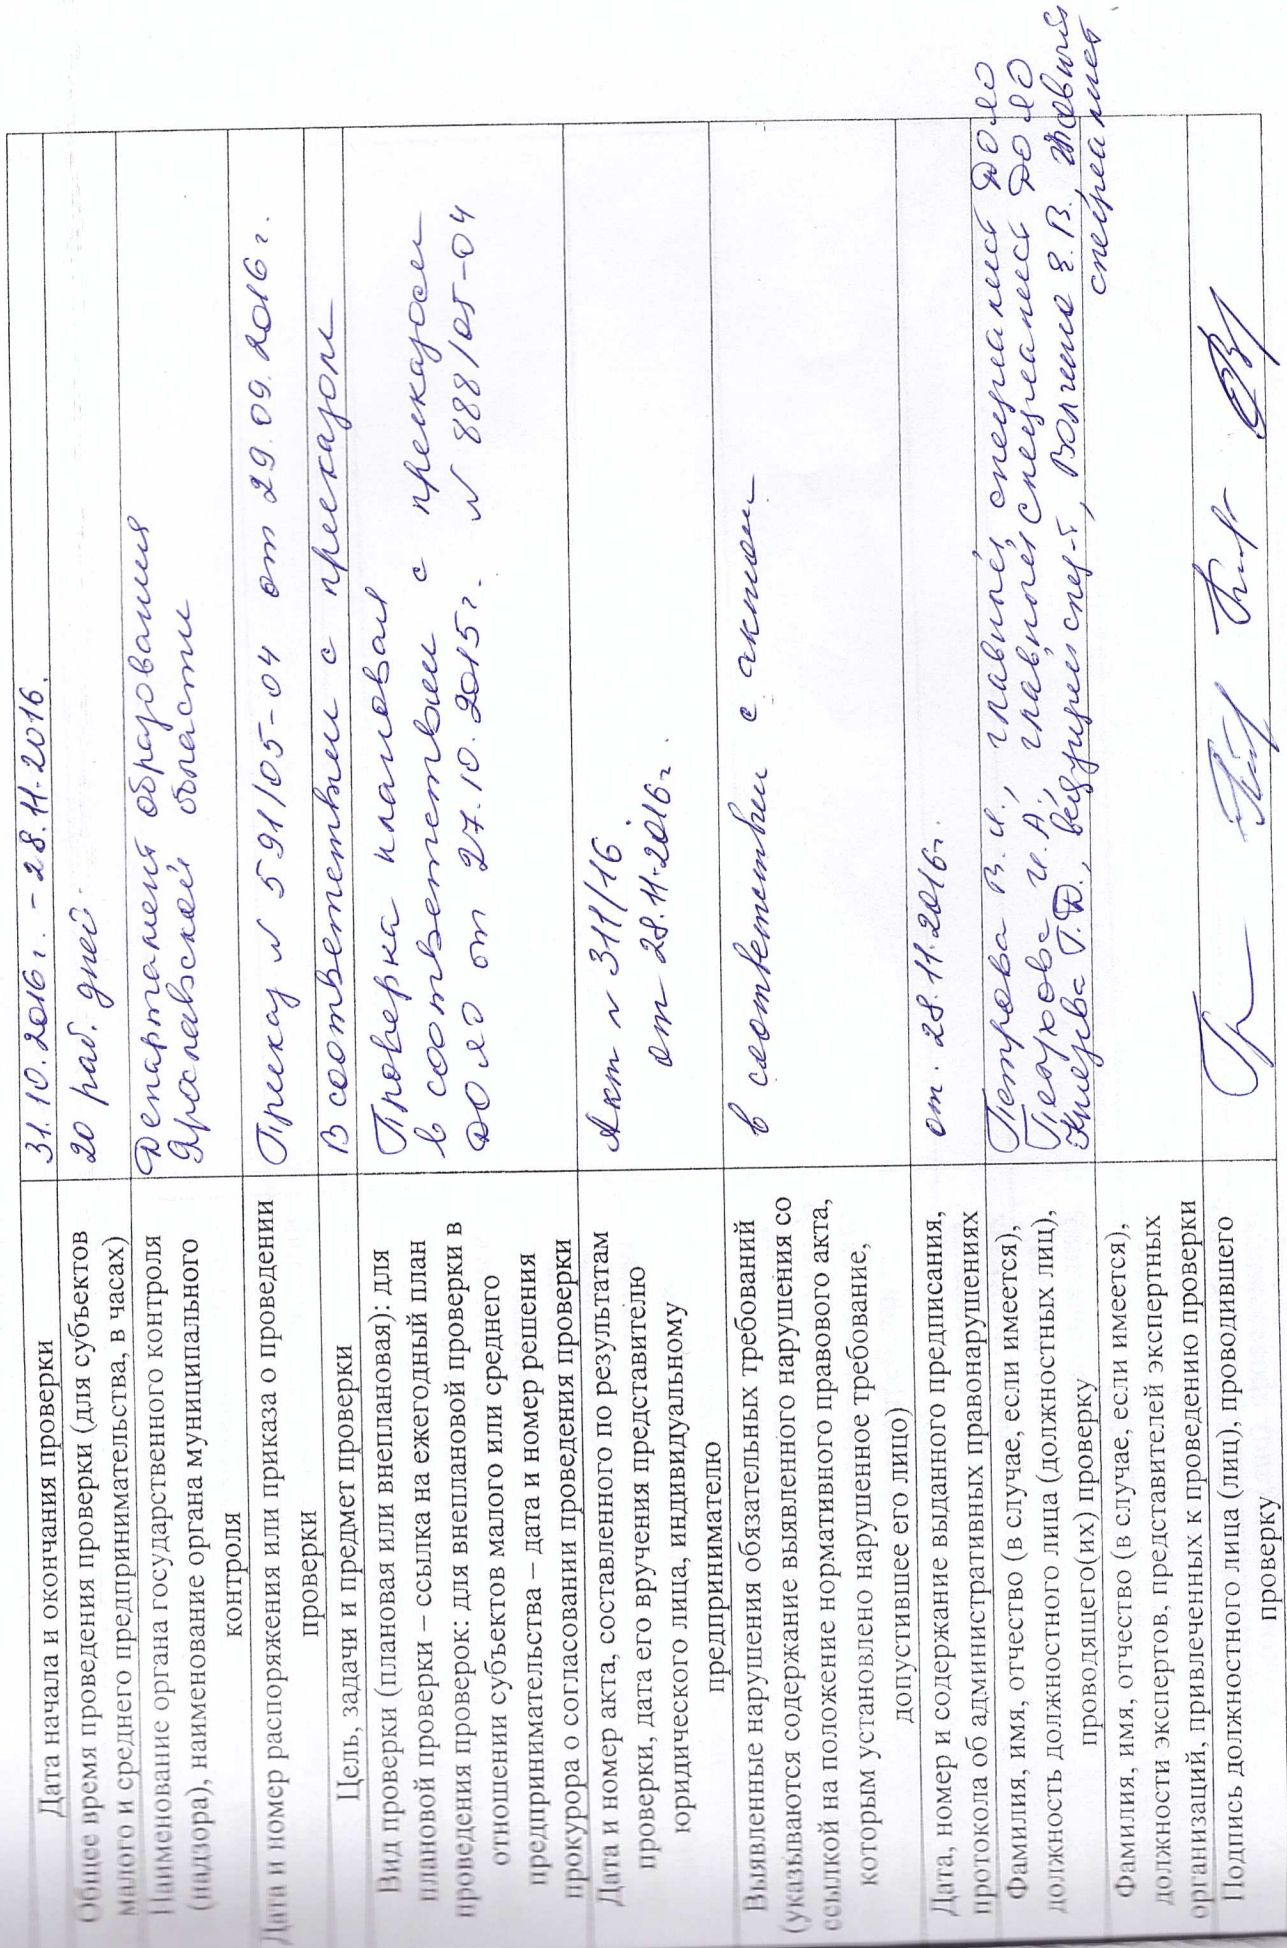 Дата начала и окончания проверки
31.10.2016г. – 28.11.2016.
Общее время проведения проверки (для субъектов
малого и среднего предпринимательства, в часах)
20 раб. дней.
Наименование органа государственного контроля
(надзора), наименование органа муниципального
контроля
Департамент образования
Ярославской области
Дата и номер распоряжения или приказа о проведении
проверки
Приказ № 591/05-04 от 29.09.2016г.
Цель, задачи и предмет проверки
В соответствии с приказом
Вид проверки (плановая или внеплановая): для
плановой проверки – ссылка на ежегодный план
проведения проверок: для внеплановой проверки в
отношении субъектов малого или среднего
предпринимательства – дата и номер решения
прокурора о согласовании проведения проверки
Проверка плановая
в соответствии с приказом
ДОЯО от 27.10.2015г. № 888/05-04
Дата и номер акта, составленного по результатам
проверки, дата его вручения представителю
юридического лица, индивидуальному
предпринимателю
Акт № 311/16
от 28.11.2016г.
Выявленные нарушения обязательных требований
(указываются содержание выявленного нарушения со
ссылкой на положение нормативного правового акта,
которым установлено нарушенное требование,
допустившее его лицо)
в соответствии с актом
Дата, номер и содержание выданного предписания,
протокола об административных правонарушениях
от. 28.11.2016г.
Фамилия, имя, отчество (в случае, если имеется),
должность должностного лица (должностных лиц),
проводящего(их) проверку
Петрова В.И., главный специалист ДОЯО
И.А., главный специалист ДОЯО
Князева Г.Д., ведущий спец-т, Е.В., главный
специалист
Фамилия, имя, отчество (в случае, если имеется),
должности экспертов, представителей экспертных
организаций, привлеченных к проведению проверки
Подпись должностного лица (лиц), проводившего
проверку